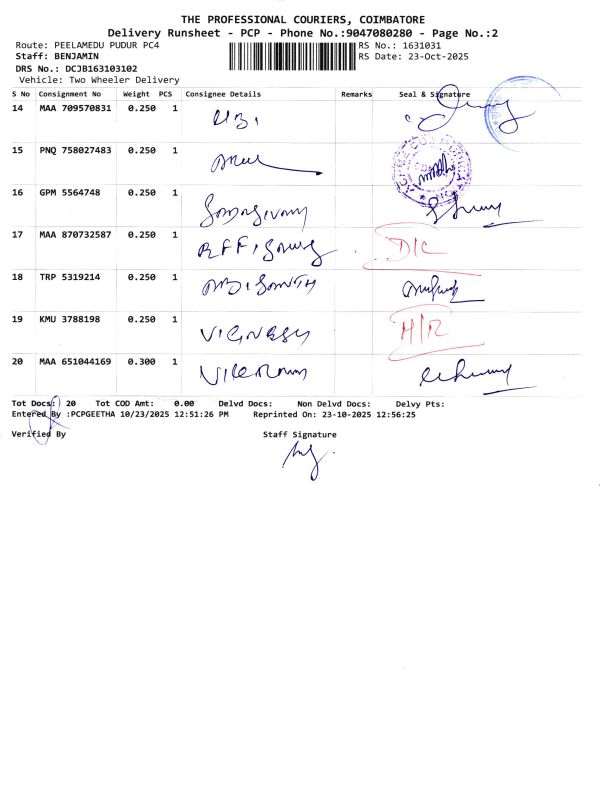 THE PROFESSIONAL COURIERS, COIMBATORE
Delivery Runsheet - PCP - Phone No.:9047080280 - Page No.:2
Route: PEELAMEDU PUDUR PC4 RS No.: 1631031
Staff: BENJAMIN RS Date: 23-Oct-2025
DRS No.: DCJB163103102
Vehicle: Two Wheeler Delivery
S No Consignment No Weight PCS Consignee Details Remarks Seal & Signature
14 MAA 709570831 0.250 1
15 PNQ 758027483 0.250 1
16 GPM 5564748 0.250 1
17 MAA 870732587 0.250 1 D/C
18 TRP 5319214 0.250 1
19 KMU 3788198 0.250 1 VIGNESH H/R
20 MAA 651044169 0.300 1
Tot Docs: 20 Tot COD Amt: 0.00 Delvd Docs: Non Delvd Docs: Delvy Pts:
Entered By :PCPGEETHA 10/23/2025 12:51:26 PM Reprinted On: 23-10-2025 12:56:25
Verified By Staff Signature